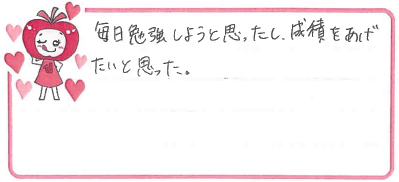 毎日勉強しようと思ったし、成績をあげ
たいと思った。